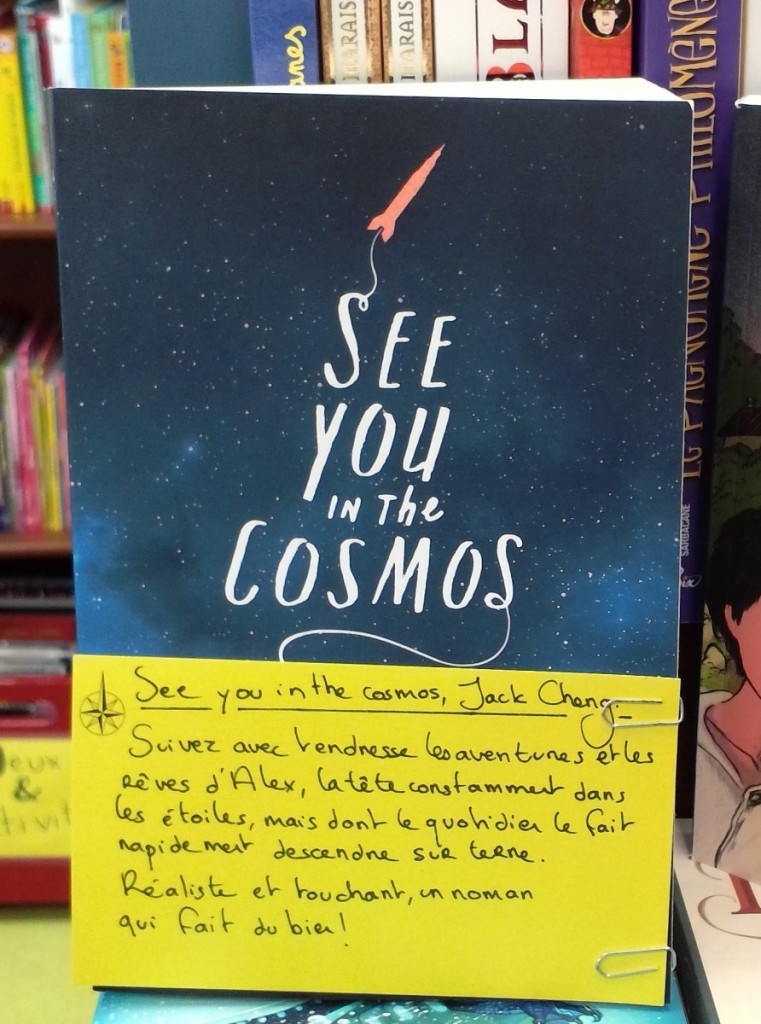 SEE
YOU
IN The
COSMOS
See you in the cosmos, Jack Cheng.
Suivez avec tendresse les aventures et les
rêves d'Alex, la tête constamment dans
les étoiles, mais dont le quotidien le fait
rapidement descendre sur terre.
Réaliste et touchant, un roman
qui fait du bien!
nes
MARAIS
MARAIS
BLA
LE PAGNONGNE PHILOMÈNE
SARBACANE
eux
&
tivit